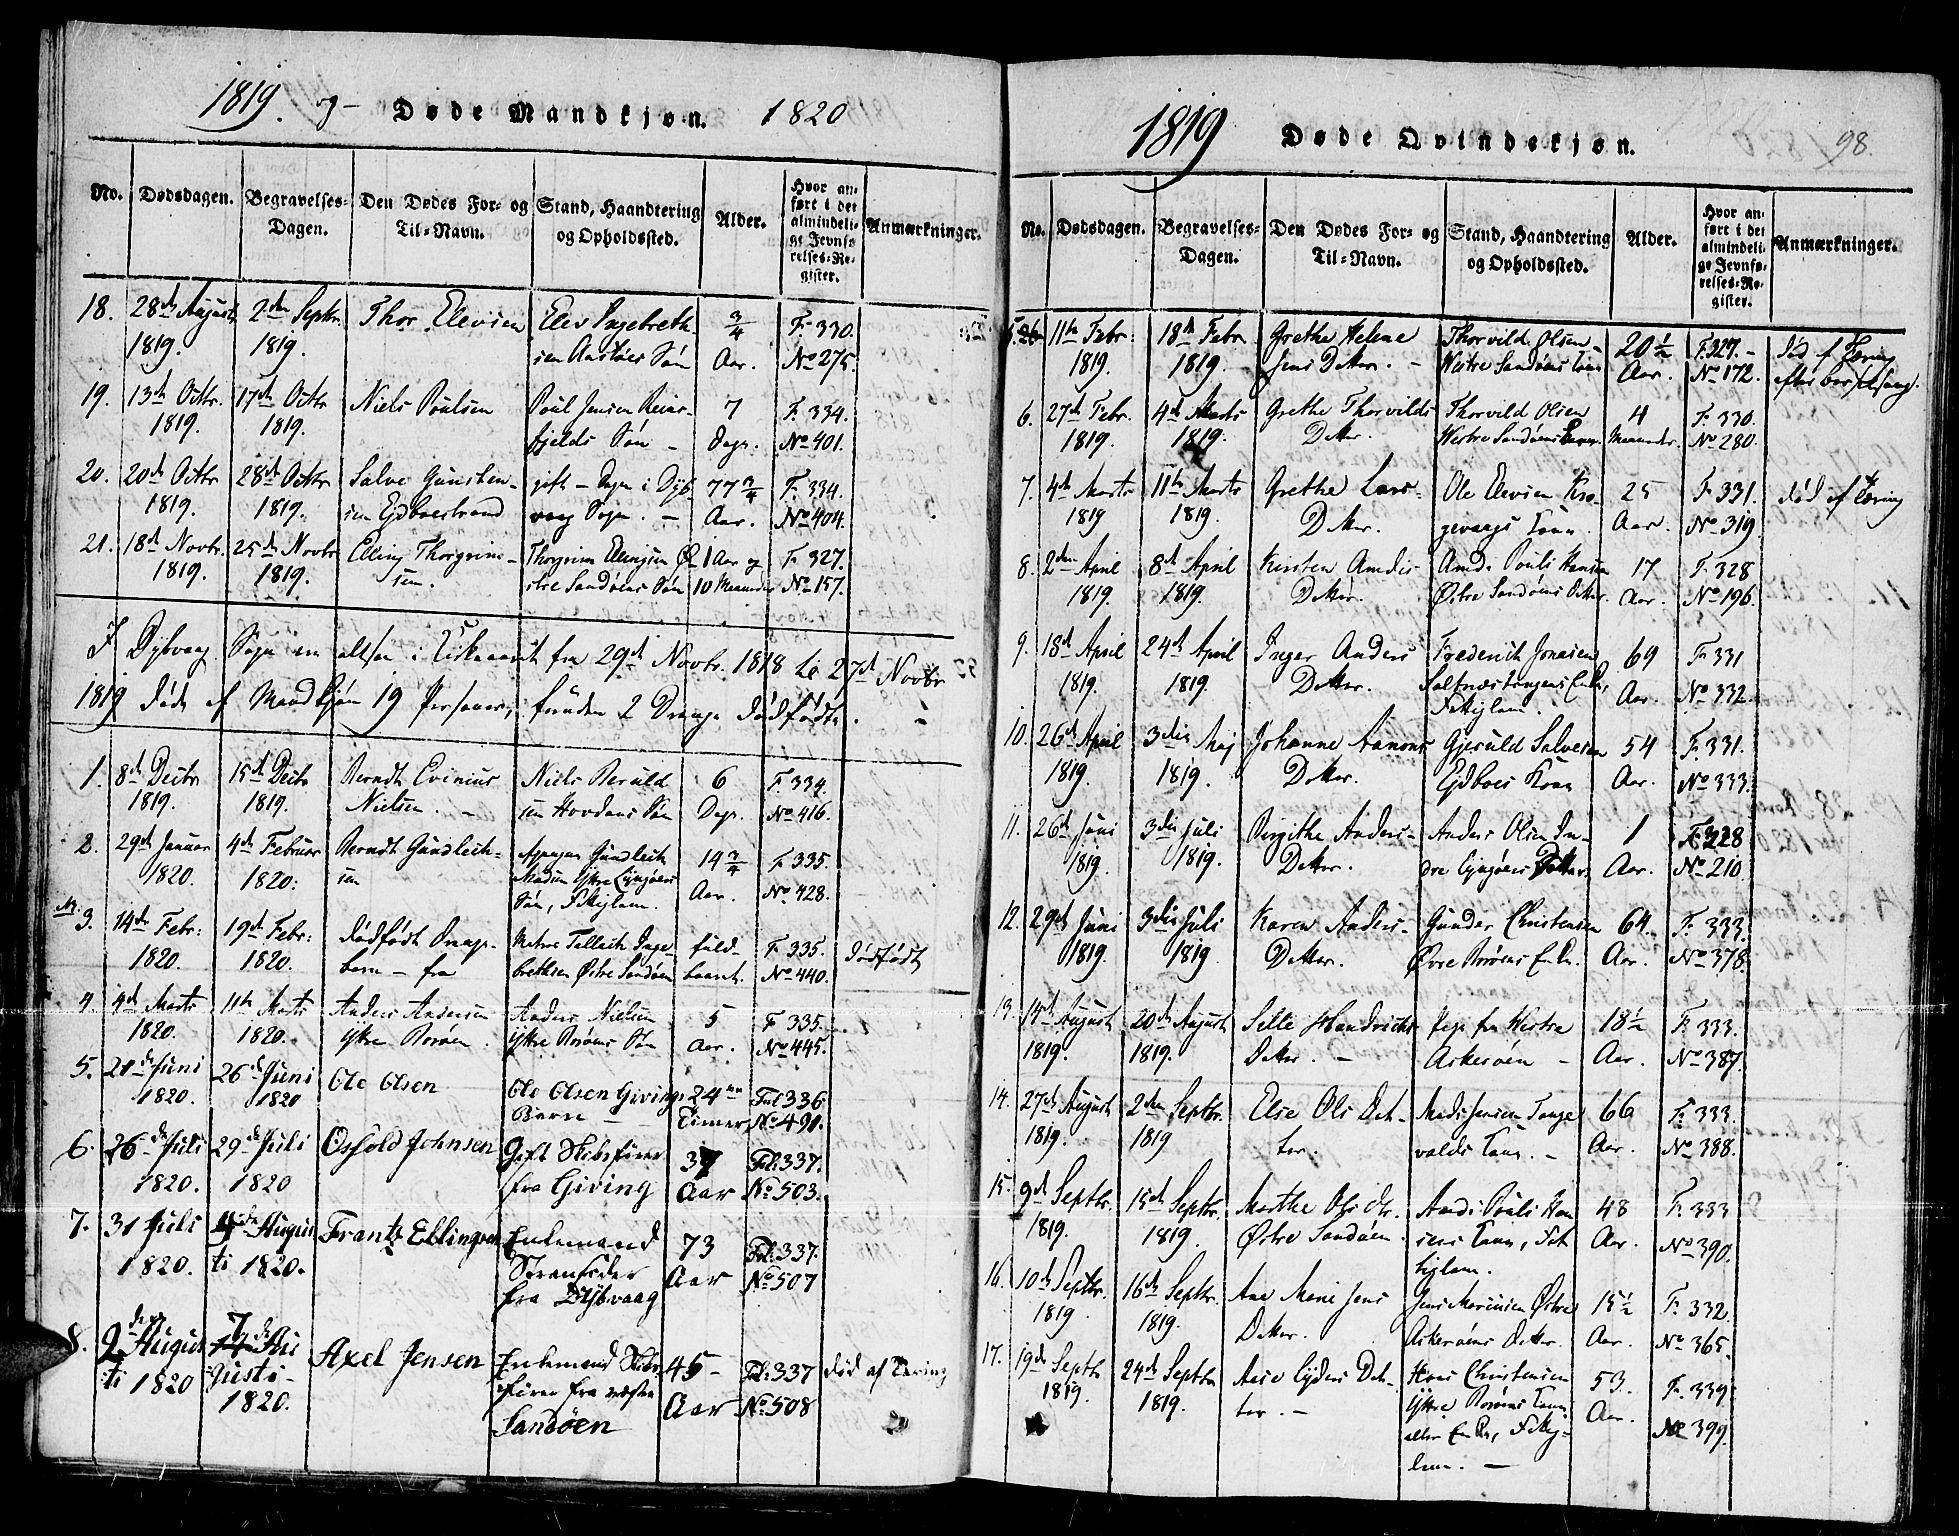 1819. og – Døde Mandkjøn. 1820
No. Dødsdagen. Begravelses-Dagen. Den Dødes For- og Til-Navn. Stand, Haandtering og Opholdssted. Alder. Hvor anført i det almindelige Jevnførelses-Register. Anmærkninger.
18. 28de August 2den Septbr. Thor Elevsen Elev Ingebreth- 3/4 F. 330.
1819. 1819. sen Søn Aar. No 275.
19. 13de Octbr. 17de Octbr. Niels Poulsen Poul Jensen Reins- 7 F. 334.
1819. 1819. fjelds Søn – Dage. No 401.
20. 20de Octbr 28de Octbr Salve Gunsten- gift – i Dyb- 77 3/4 F. 334.
1819. 1819. sen Eidboestrand vaag Sogn. – Aar. No 404.
21. 18de Novbr. 25de Novbr Elling Thorgrim- Thorgrim Ellingsen Ø- 1 Aar og F. 327.
1819. 1819. sen. stre Sandøens Søn 10 Maaneder No 157.
I Dybvaag Sogn ere altsaa i Kirkeaaret fra 29de Novbr. 1818 til 27de Novbr
1819 døde af Mandkjøn 19 Personer, foruden 2 Drenge dødfødte.
1. 8de Decbr 15de Decbr Berndt Evinius Niels Beruld- 6 F. 334.
1819. 1819. Nielsen. – sen Hovdens Søn Dage. No 416.
2. 29de Januar 4de Februar Berndt Gundleik- Gundleik 14 3/4 F. 335.
1820. 1820. sen Madsen Ytre Lyngøens Aar. No 428.
Søn, Fattiglem.
3. 14de Febr: 19de Febr: dødfødt Drenge- Tellef Inge- fuld- F. 335. dødfødt
1820. 1820. barn – fra brethsen Østre Sandøen baaret. No 440.
4. 4de Marts 11te Marts Anders Andersen Anders Nielsen 5 F 335.
1820. 1820. Ytre Borøen. Ytre Borøens Søn Aar. No 445.
5. 21de Juni 26de Juni Ole Olsen Ole Olsen Givings 24 Fol 336
1820. 1820 Barn – Timer No 491.
6. 26de Juli 29de Juli Osfold Johnsen Gift Skibsfører 37 Fol: 337.
1820. 1820 fra Giving Aar No 503.
7. 31 Juli 4de Augus Frantz Ellingsen Enkemand 73 Fol: 337.
1820. ti 1820. Strandsider Aar No 507
fra Dybvaag
8. 2den Augus 7de Au Axel Jensen Enkemand Skibs 45 – Fol: 337 død af Tæring
ti 1820 gusti – fører fra vestre Aar No 508
1820. Sandöen
1819 Døde Qvindekjøn. 98.
No. Dødsdagen. Begravelses-Dagen. Den Dødes For- og Til-Navn. Stand, Haandtering og Opholdssted. Alder. Hvor anført i det almindelige Jevnførelses-Register. Anmærkninger.
5. 11te Febr. 18de Febr. Grethe Helene Thorvild Olsen 20 1/2 F. 327. – død af Tæring
1819. 1819. Jens Datter. – Vestre Sandøens Kone Aar. No 172. efter barselseng.
6. 27de Febr. 4de Marts Grethe Thorvilds Thorvild Olsen 4 F. 330.
1819. 1819. Datter. Vestre Sandøens Barn. Maaneder. No 280.
7. 4de Marts 11te Marts Grethe Lars- Ole Elevsen Kro- 25 F. 331. død af Tæring
1819 1819. Datter. gevaags Kone. Aar. No 319.
8. 2den April 8de April Kirsten Amdes Amde Pouli Hansen 17 F. 328
1819. 1819. Datter. Østre Sandøens Datter. Aar. No 196.
9. 18de April 24de April Inger Anders Frederich Jonasens 69 F. 331
1819. 1819. Datter. Saltnæstangens Enke, Aar. No 332.
Fattiglem.
10. 26de April 3die Maj Johanne Aanons Gjeruld Salvesen 54 F. 331.
1819. 1819. Datter. Eidboes Kone Aar. No 333.
11. 26de Juni 3die Juli Birgithe Anders- Anders Olsen In- 1 F. 328
1819. 1819. Datter. dre Lyngøens Datter. Aar. No 210.
12. 29de Juni 3die Juli Karen Anders- Gunder Christensen 64 F. 333.
1819. 1819 Datter. Øvre Borøens Enke. Aar. No 378.
13. 14de August 20de August Sille Hendrichs Pige fra Vestre 18 1/2 F. 333.
1819. 1819. Datter. – Askerøen – Aar. No 387.
14. 27de August 2den Septbr. Else Ols Dat- Mads Jensen Tange 66 F. 333.
1819. 1819 ter. volds Kone. – Aar. No 388.
15. 9de Septbr. 15de Septbr. Marthe Ols Dtr. Amds Pouli Han 48 F. 333
1819. 1819. Østre Sandøen. sens Kone, Fat- Aar. No 390.
tiglem.
16. 10de Septbr. 16de Septbr. Ane Marie Jens Jens Østre 15 1/2 F. 332.
1819. 1819. Datter. Askerøens Datter. Aar. No 365.
17. 19de Septbr 24de Septbr Aase Lydens Dat- Hans Christensen 53. F. 339.
1819. 1819. ter. – Ytre Borøens Kone Aar. No 399.
eller Enke, Fattig-
lem. –